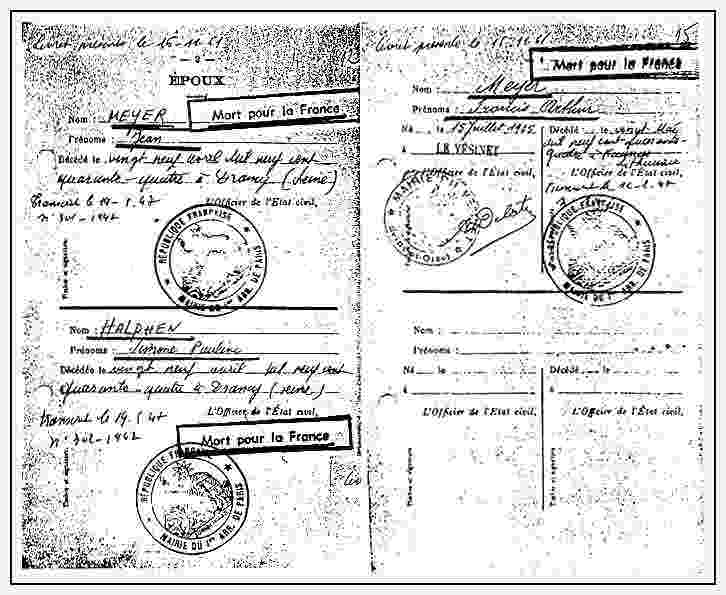 livret présenté le 15-11-61
— 2 —
ÉPOUX
Mort pour la France
Nom : MEYER
Prénoms : Jean
Décédé le vingt neuf avril mil neuf cent
quarante quatre à Drancy (Seine)
Transcrit le 14-1.47
L'Officier de l'État civil,
RÉPUBLIQUE FRANÇAISE
MAIRIE DU 1er ARR. DE PARIS
Timbre et signature
Nom : HALPHEN
Prénoms : Simone Pauline
Décédée le vingt neuf avril mil neuf cent
quarante quatre à Drancy (Seine)
L'Officier de l'État civil,
Mort pour la France
RÉPUBLIQUE FRANÇAISE
MAIRIE DU 1er ARR. DE PARIS
Timbre et signature
livret présenté le 15.11.61
15
Mort pour la France
Nom : Meyer
Prénoms : Francis Arthur
Né le 15 juillet 1925
à LE VÉSINET
L'Officier de l'État civil,
Décédé le vingt mai
mil neuf cent quarante-
quatre à Kaunas
Lithuanie
L'Officier de l'État civil,
MAIRIE DU VÉSINET
RÉPUBLIQUE FRANÇAISE
MAIRIE DU 1er ARR. DE PARIS
Nom :
Prénoms :
Né le
à
L'Officier de l'État civil,
Timbre et signature
Décédé le
à
L'Officier de l'État civil,
Timbre et signature